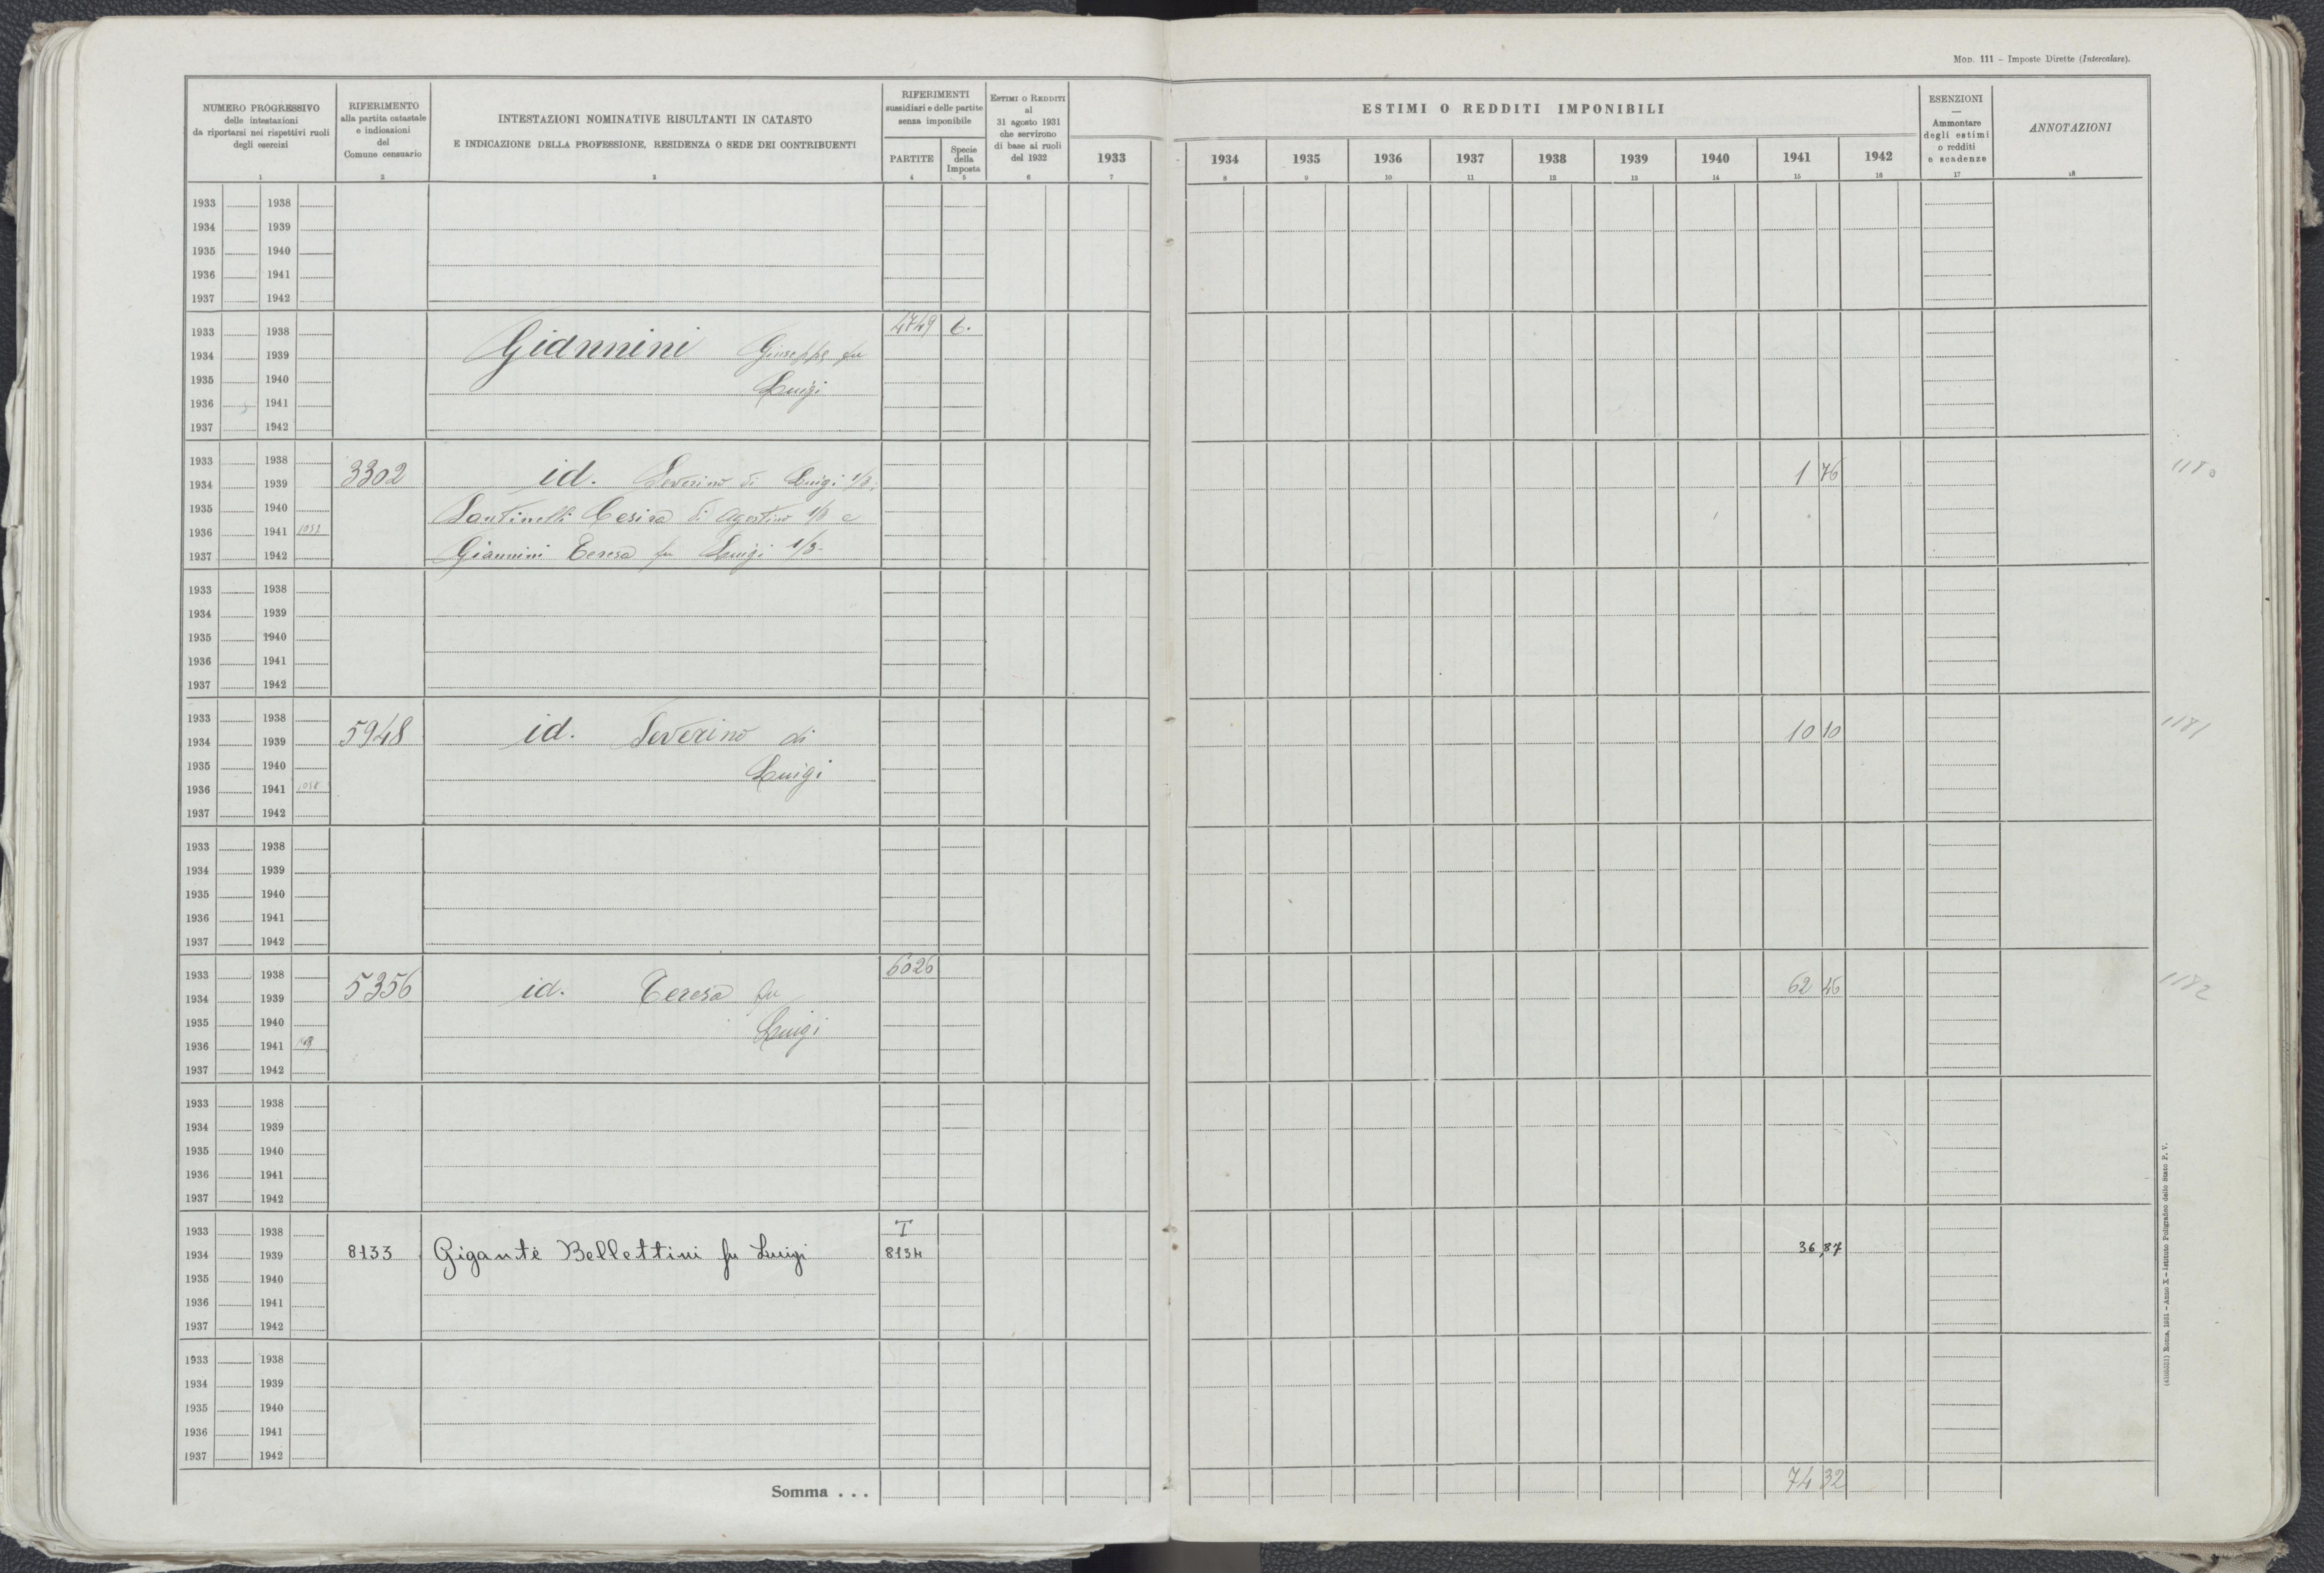 Mod. 111 – Imposte Dirette (Intercalare).
NUMERO PROGRESSIVO
delle intestazioni
da riportarsi nei rispettivi ruoli
degli esercizi
1
RIFERIMENTO
alla partita catastale
e indicazioni
del
Comune censuario
2
INTESTAZIONI NOMINATIVE RISULTANTI IN CATASTO
E INDICAZIONE DELLA PROFESSIONE, RESIDENZA O SEDE DEI CONTRIBUENTI
3
RIFERIMENTI
sussidiari e delle partite
senza imponibile
PARTITE
4
Specie
della
Imposta
5
Estimi o Redditi
al
31 agosto 1931
che servirono
di base ai ruoli
del 1932
6
ESTIMI O REDDITI IMPONIBILI
1933 1934 1935 1936 1937 1938 1939 1940 1941 1942
7 8 9 10 11 12 13 14 15 16
ESENZIONI
—
Ammontare
degli estimi
o redditi
e scadenze
17
ANNOTAZIONI
18
1933 1938
1934 1939
1935 1940
1936 1941
1937 1942
1933 1938 4749 6.
1934 1939 Giannini Giuseppe fu
1935 1940 Luigi
1936 1941
1937 1942
1933 1938
1934 1939 3302 id. Severino di Luigi 1/3; 1 76 1180
1935 1940 Santinelli Cesira di Agostino 1/3 e
1936 1941
1937 1942 Giannini Teresa fu Luigi 1/3
1933 1938
1934 1939
1935 1940
1936 1941
1937 1942
1933 1938
1934 1939 5948 id. Severino di 10 10 1181
1935 1940 Luigi
1936 1941
1937 1942
1933 1938
1934 1939
1935 1940
1936 1941
1937 1942
1933 1938 6026
1934 1939 5356 id. Teresa fu 62 46 1182
1935 1940 Luigi
1936 1941
1937 1942
1933 1938
1934 1939
1935 1940
1936 1941
1937 1942
1933 1938 I
1934 1939 8133 Gigante Bellettini fu Luigi 8134 36,87
1935 1940
1936 1941
1937 1942
1933 1938
1934 1939
1935 1940
1936 1941
1937 1942
Somma . . . 74 32
Roma, 1931 – Anno X – Istituto Poligrafico dello Stato P. V.